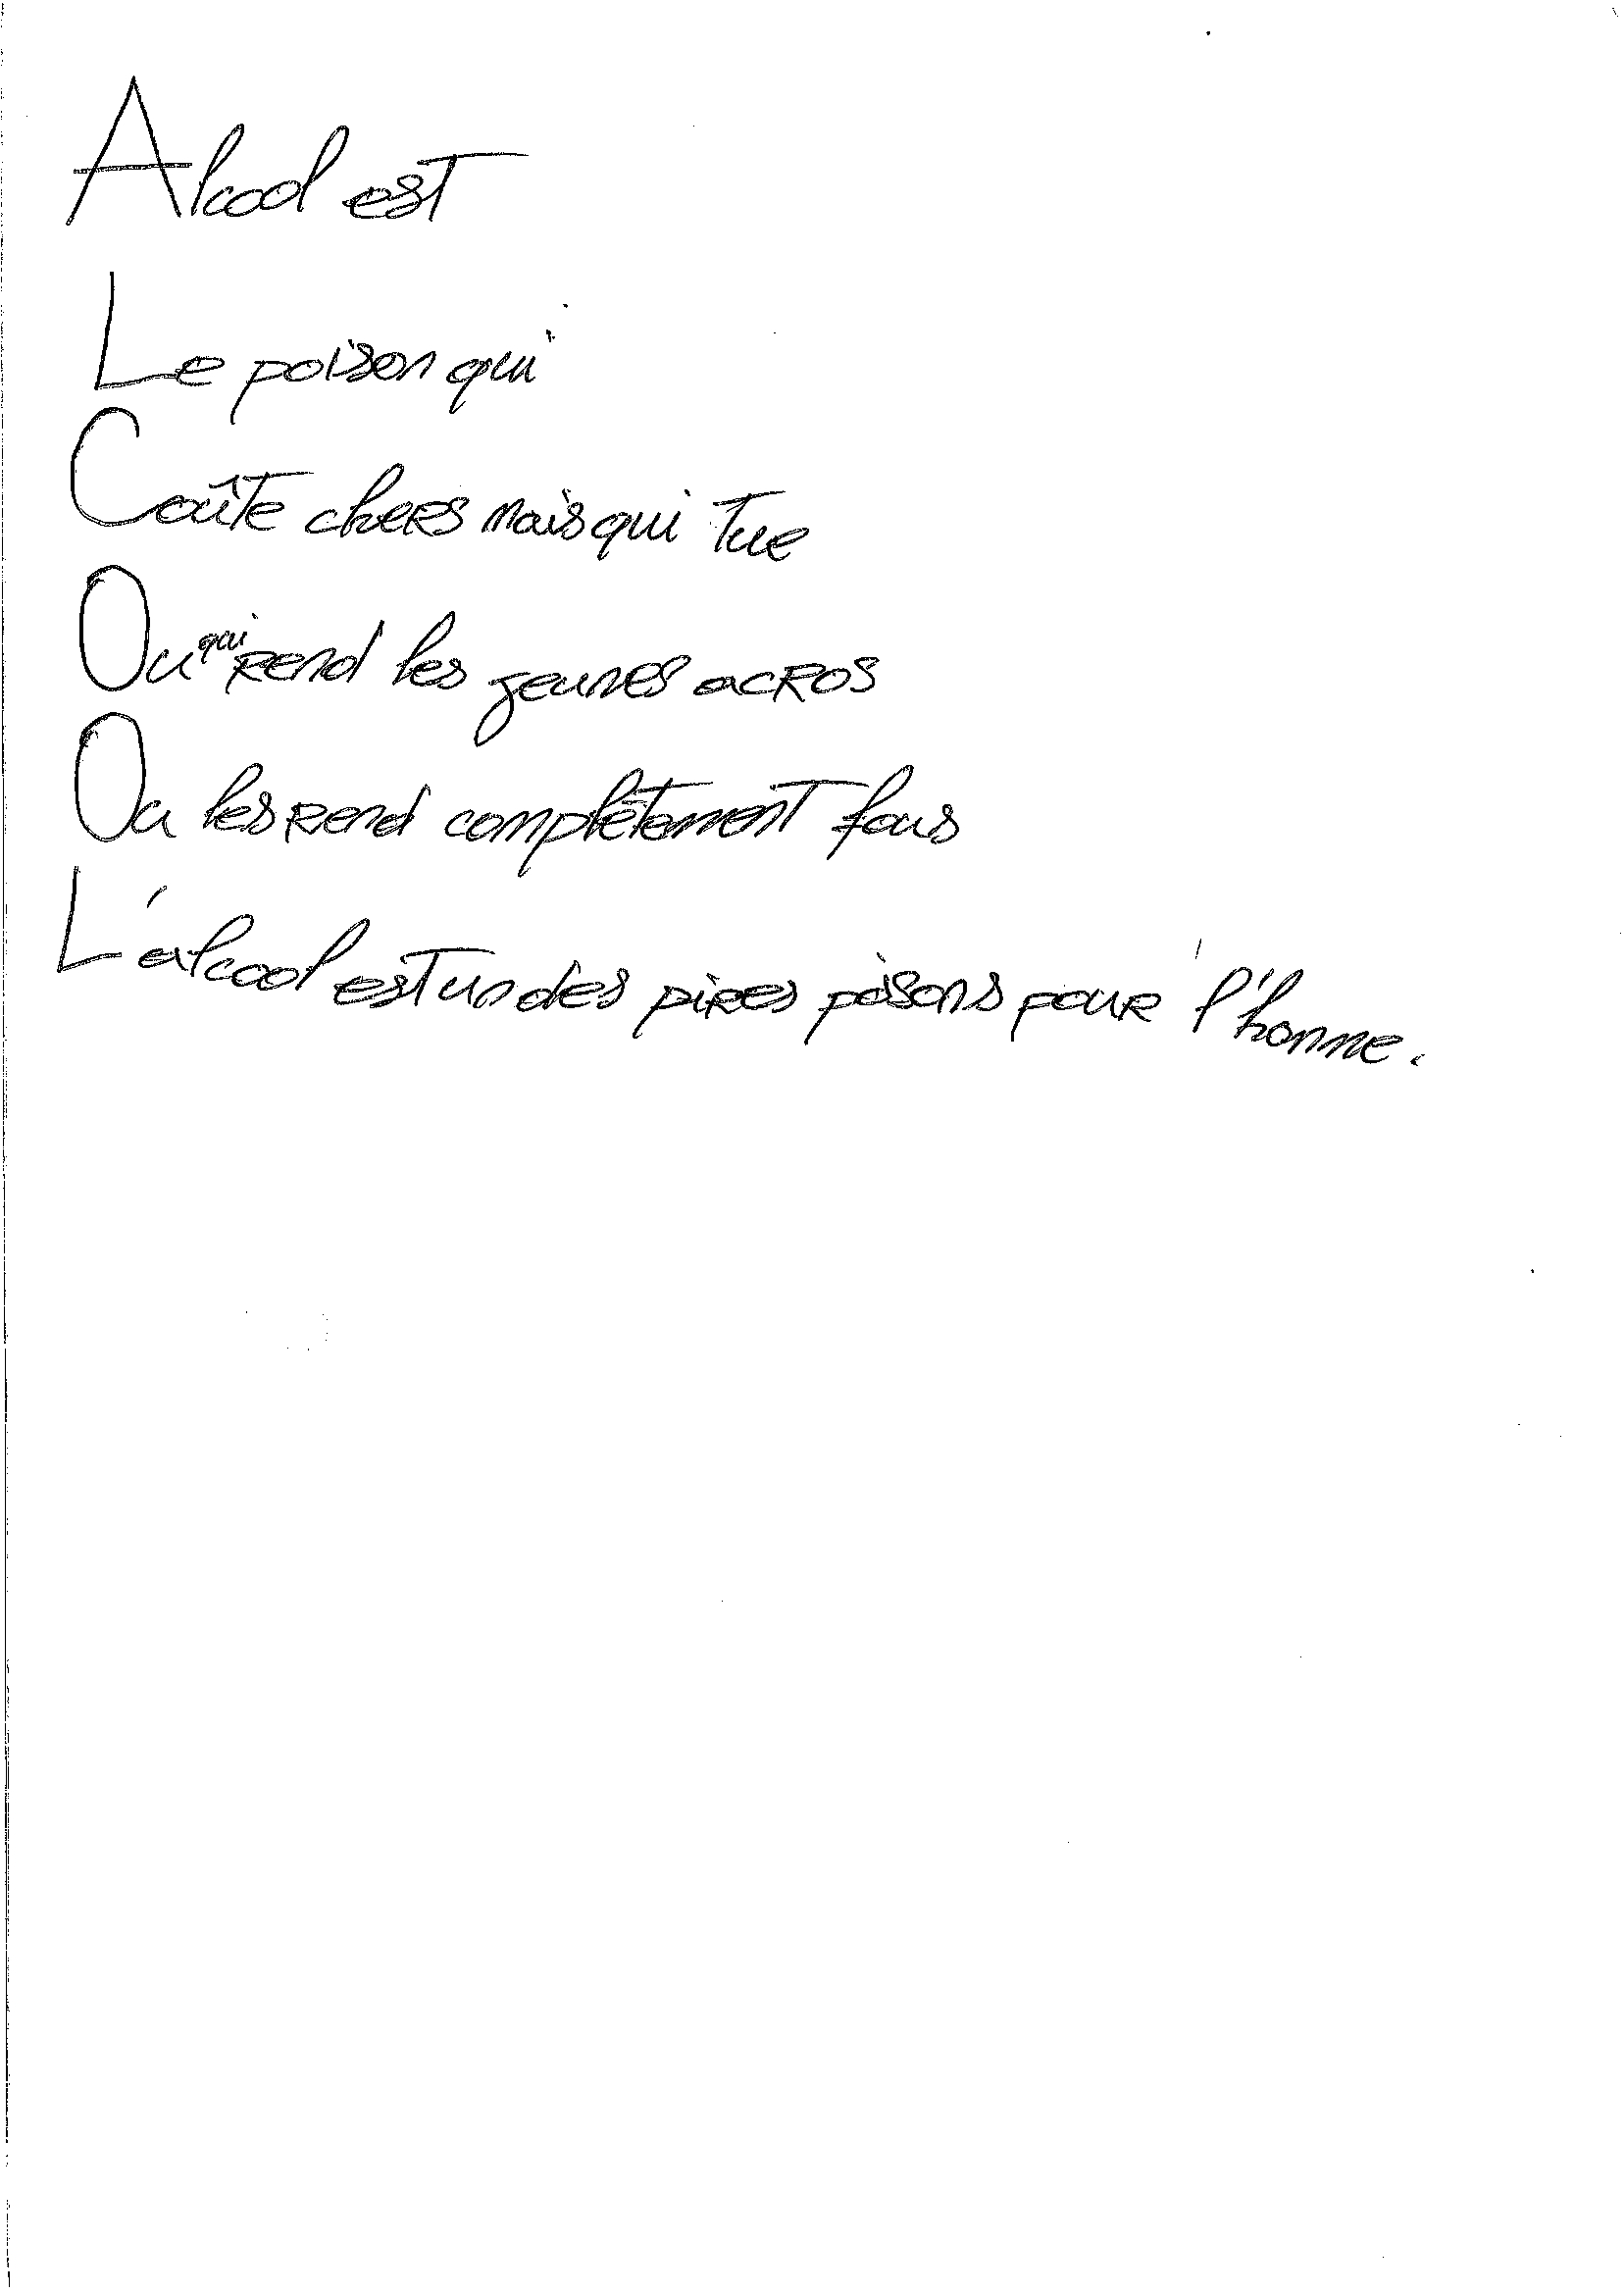 Alcool est
Le poison qui
Coûte chers mais qui tue
Ou qui rend les jeunes acros
Ou les rend complètement fous
L'alcool est un des pires poisons pour l'homme.